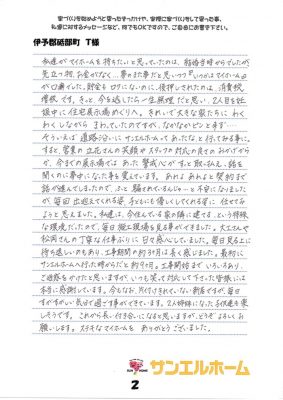 家づくりを始めようと思ったきっかけや、実際に家づくりをして思った事、
私達に対するメッセージなど、何でもOKですので、ご自由にお書き下さい。
伊予郡砥部町 T様
私達がマイホームを持ちたいと思っていたのは、結婚当時からでしたが
先立つ物、お金がなく、夢のまた夢だと思いつつ『いつかはマイホーム』
が口癖でした。貯金も0にないのに、後押しされたのは、消費税
増税です。きっと、今を逃したら一生無理だ
と思い、2人目を妊
娠中に住宅展示場めぐりへ。きれいで大きな家たちにわく
わくしながらまわっていたのですが、なかなかピンとき
そういえば通路沿いにサンエルホームってあったな、と行ってみる事に。
すると、営業の立花さんの笑顔やスタッフの対応の良さのおかげから
か、今までの展示場ではあった警戒心がすっと取り払え、話を
聞くのに夢中になった事を覚えています。あれよあれよと契約まで
話が進んでしまったので、ふと騙されているんじゃ…と不安になりました
が、毎回出迎えてくれる姿、子どもにも優しくしてくれる姿に任せてみ
ようと思えました。私達は、今住んでいる家の隣に建てる、という特殊
な環境だったので、毎日職人現場を見る事ができました。大工さんや
松岡さんの丁寧な仕事ぶりに日々感心していました。毎日見る上に
待ち遠しいのもあり、工事期間の約3か月は長く感じました。最初に
サンエルホームへ行った時からだと約9か月。工事開始までいろいろあり、
ご迷惑をかけたと思いますが、いつも笑って対応して下さった皆様には
本当に感謝しています。今もなお、片付けきれていない新居ですが、毎日
すがすがしい気分で過ごす事ができています。2人姉妹になった子供達も楽
しそうです。これから長い付き合いになると思いますが、どうぞよろしくお
願いします。ステキなマイホームを ありがとうございました。
サンエルホーム
2